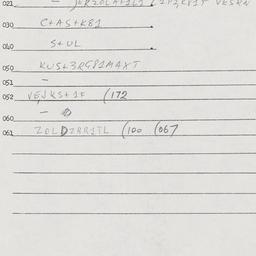 021
030 C+AS+K81
040 S+UL
050 KUS+3RG81MAXT
051 —
052 VEJKS+1F (172
060 —
061 ZOLDZRR1TL (100 (067